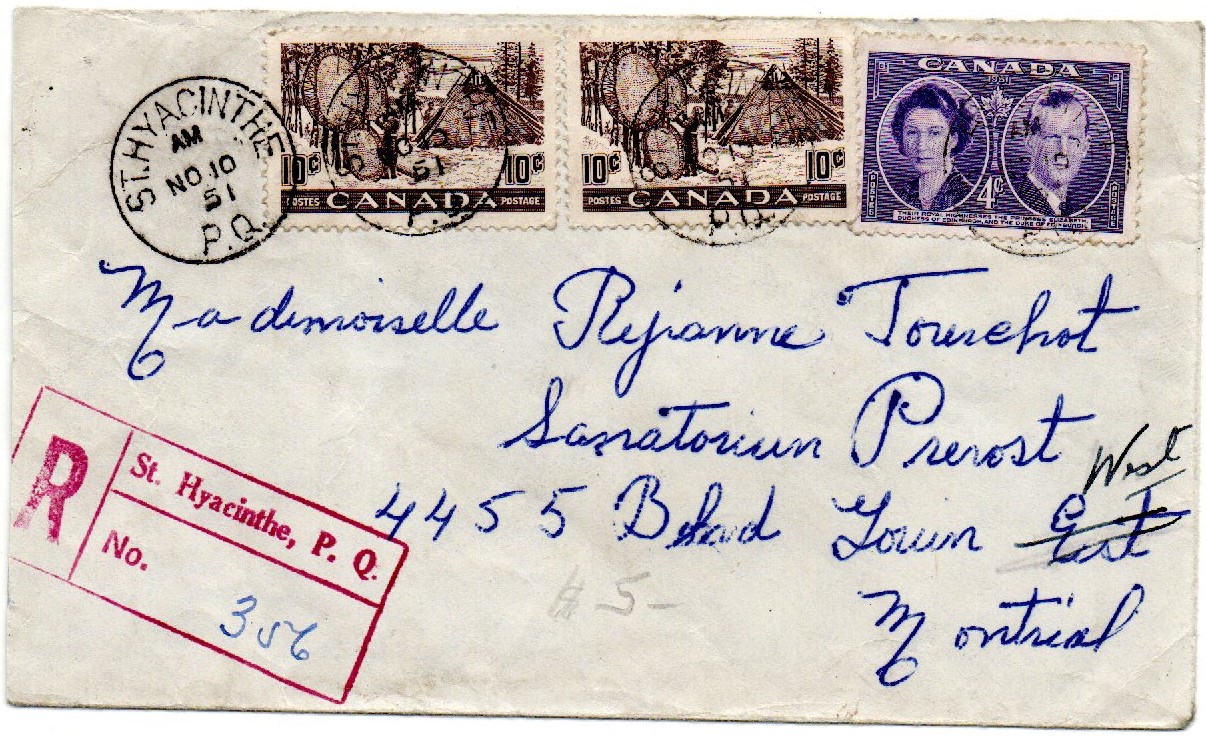 ST. HYACINTHE
AM
NO 10
51
P.Q.
10¢ 10¢
POSTES CANADA POSTAGE
10¢ 10¢
POSTES CANADA POSTAGE
CANADA
1951
POSTES 4¢ POSTAGE
THEIR ROYAL HIGHNESSES THE PRINCESS ELIZABETH,
DUCHESS OF EDINBURGH, AND THE DUKE OF EDINBURGH
Mademoiselle Rejianne Tourchot
Sanatorium Prevost
4455 Blvd Gouin East West
Montréal
R
St. Hyacinthe, P. Q.
No.
356
$5-